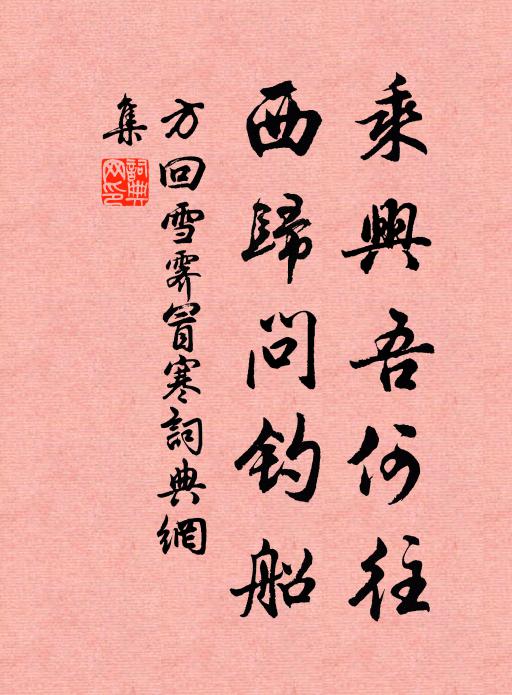 乘興吾何往
西歸問釣船
方回雪霽冒寒詞典網
集
詞典
网印